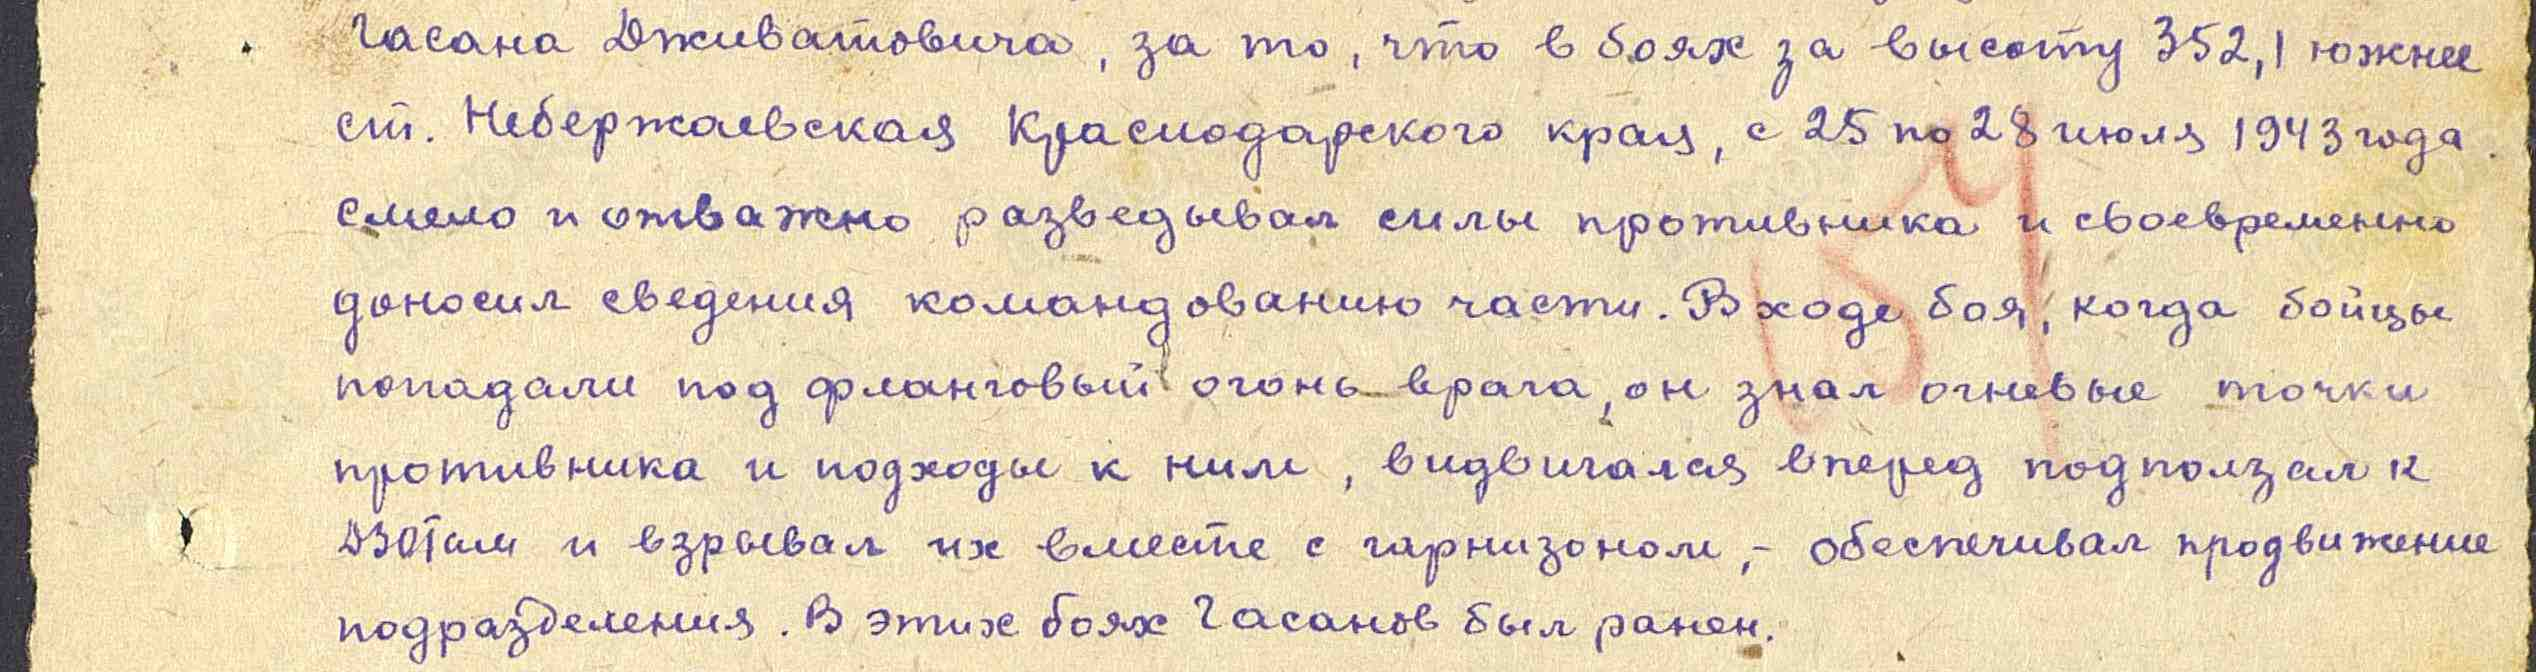 Гасана Дживатовича, за то, что в боях за высоту 352,1 южнее
ст. Небержаевская Краснодарского края, с 25 по 28 июля 1943 года.
смело и отважно разведывал силы противника и своевременно
доносил сведения командованию части. В ходе боя, когда бойцы
попадали под фланговый огонь врага, он знал огневые точки
противника и подходы к ним, видвигался вперед подползал к
ДЗОТам и взрывал их вместе с гарнизоном, - обеспечивал продвижение
подразделения. В этих боях Гасанов был ранен.